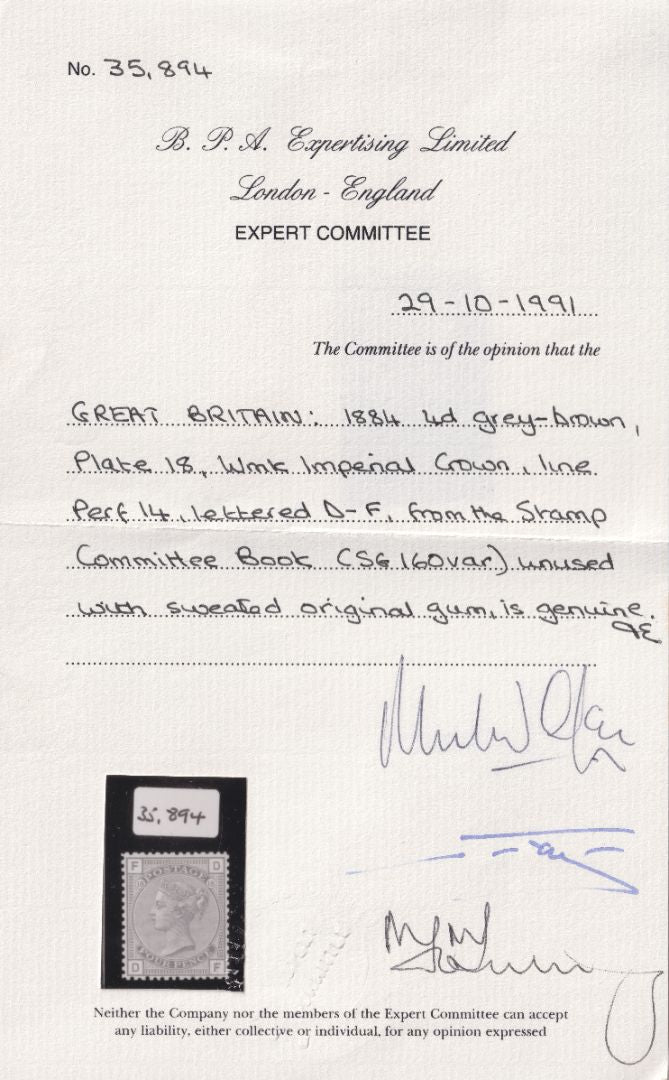 No. 35,894
B. P. A. Expertising Limited
London - England
EXPERT COMMITTEE
29-10-1991
The Committee is of the opinion that the
GREAT BRITAIN: 1884 4d grey-brown,
Plate 18, Wmk Imperial Crown, line
Perf 14, lettered D-F, from the Stamp
Committee Book (SG 160var) unused
with sweated original gum, is genuine.
35,894
F D
POSTAGE
FOUR PENCE
D F
Neither the Company nor the members of the Expert Committee can accept
any liability, either collective or individual, for any opinion expressed